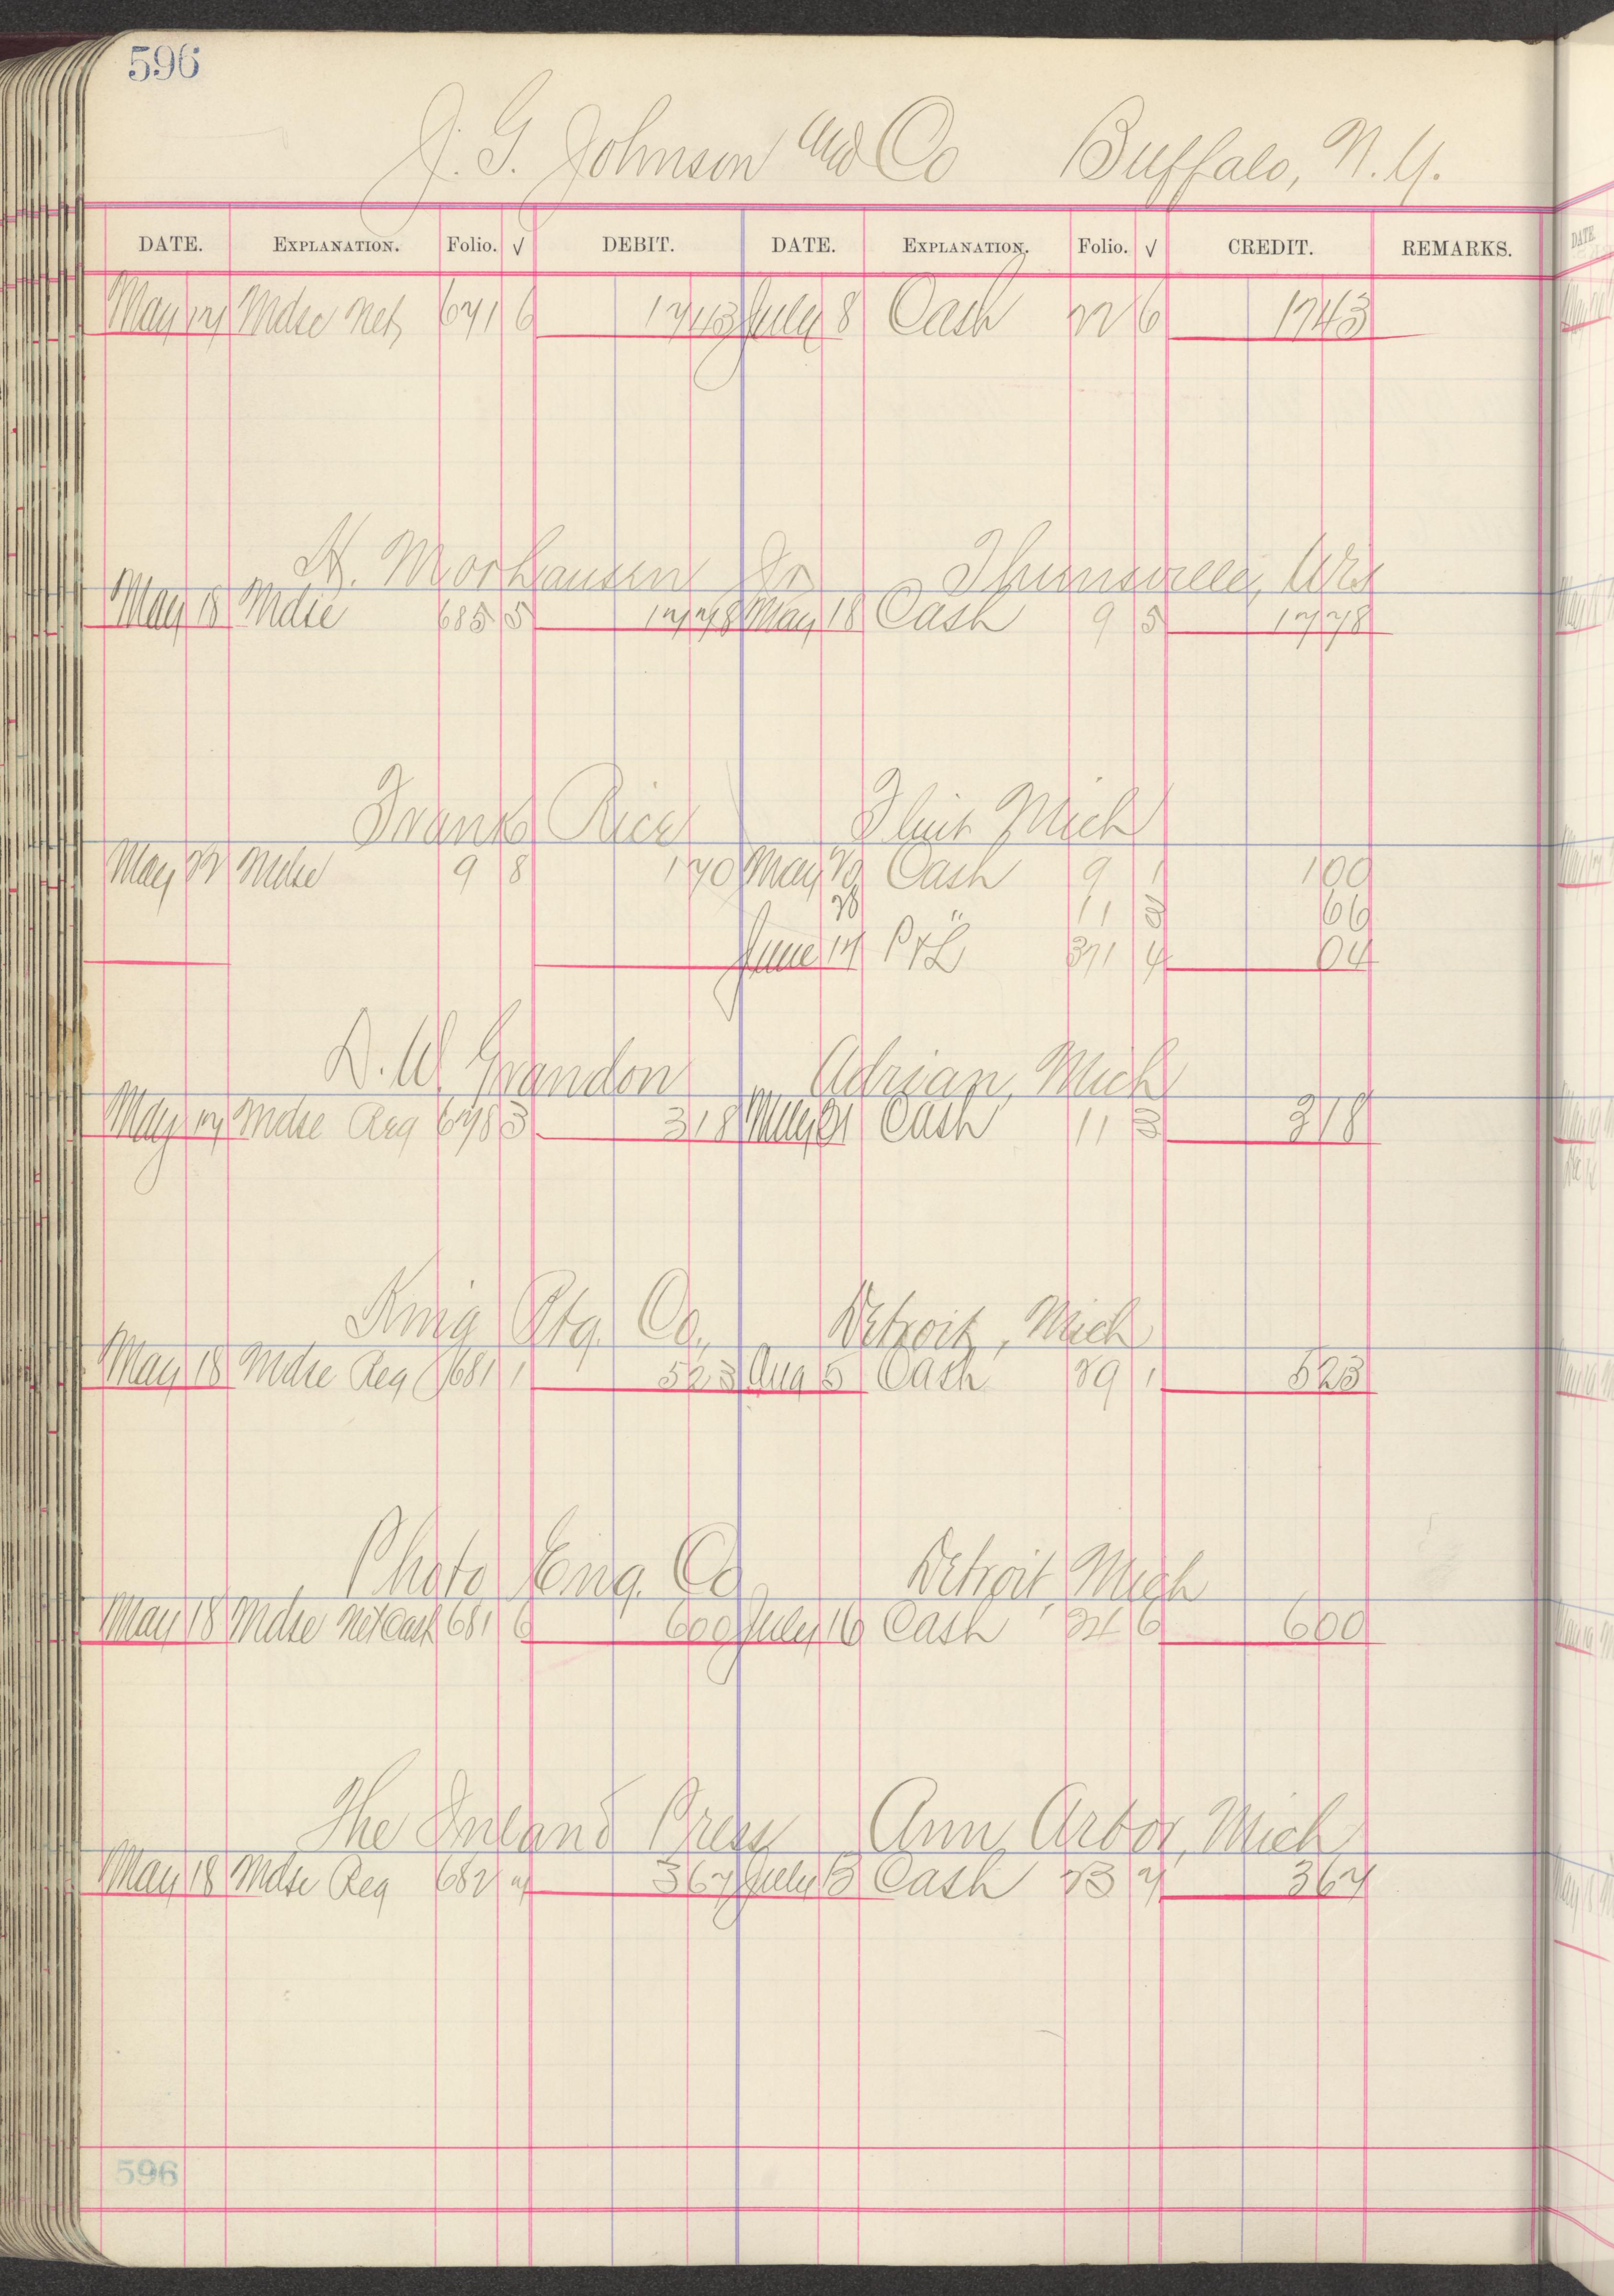 596
J. G. Johnson and Co Buffalo, N. Y.
DATE. EXPLANATION. Folio. √ DEBIT. DATE. EXPLANATION. Folio. √ CREDIT. REMARKS.
May 17 Mdse Net 671 6 1743 July 8 Cash 22 6 1743
H. Morhausen Jr
May 18 Mdse 685 5 1778 May 18 Cash 9 5 1778
Frank Rice Flint Mich
May 22 Mdse 9 8 170 May Cash 9 1 100
28 " 11 3 66
June 17 P & L 371 4 04
D. W. Grandon Adrian, Mich
May 17 Mdse Reg 678 3 318 May 31 Cash 11 3 318
King Ptg. Co., Detroit, Mich
May 18 Mdse Reg 681 1 523 Aug 5 Cash 89 1 523
Photo Eng. Co Detroit, Mich
May 18 Mdse Net Cash 681 6 600 July 16 Cash 6 600
The Inland Press Ann Arbor, Mich
May 18 Mdse Reg 682 7 367 July 13 Cash 23 7 367
596